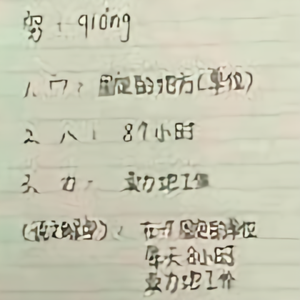 穷：qióng
1、宀：固定的地方（单位）
2、八：8个小时
3、力：卖力地工作
在一个固定的单位
每天8小时
卖力地工作